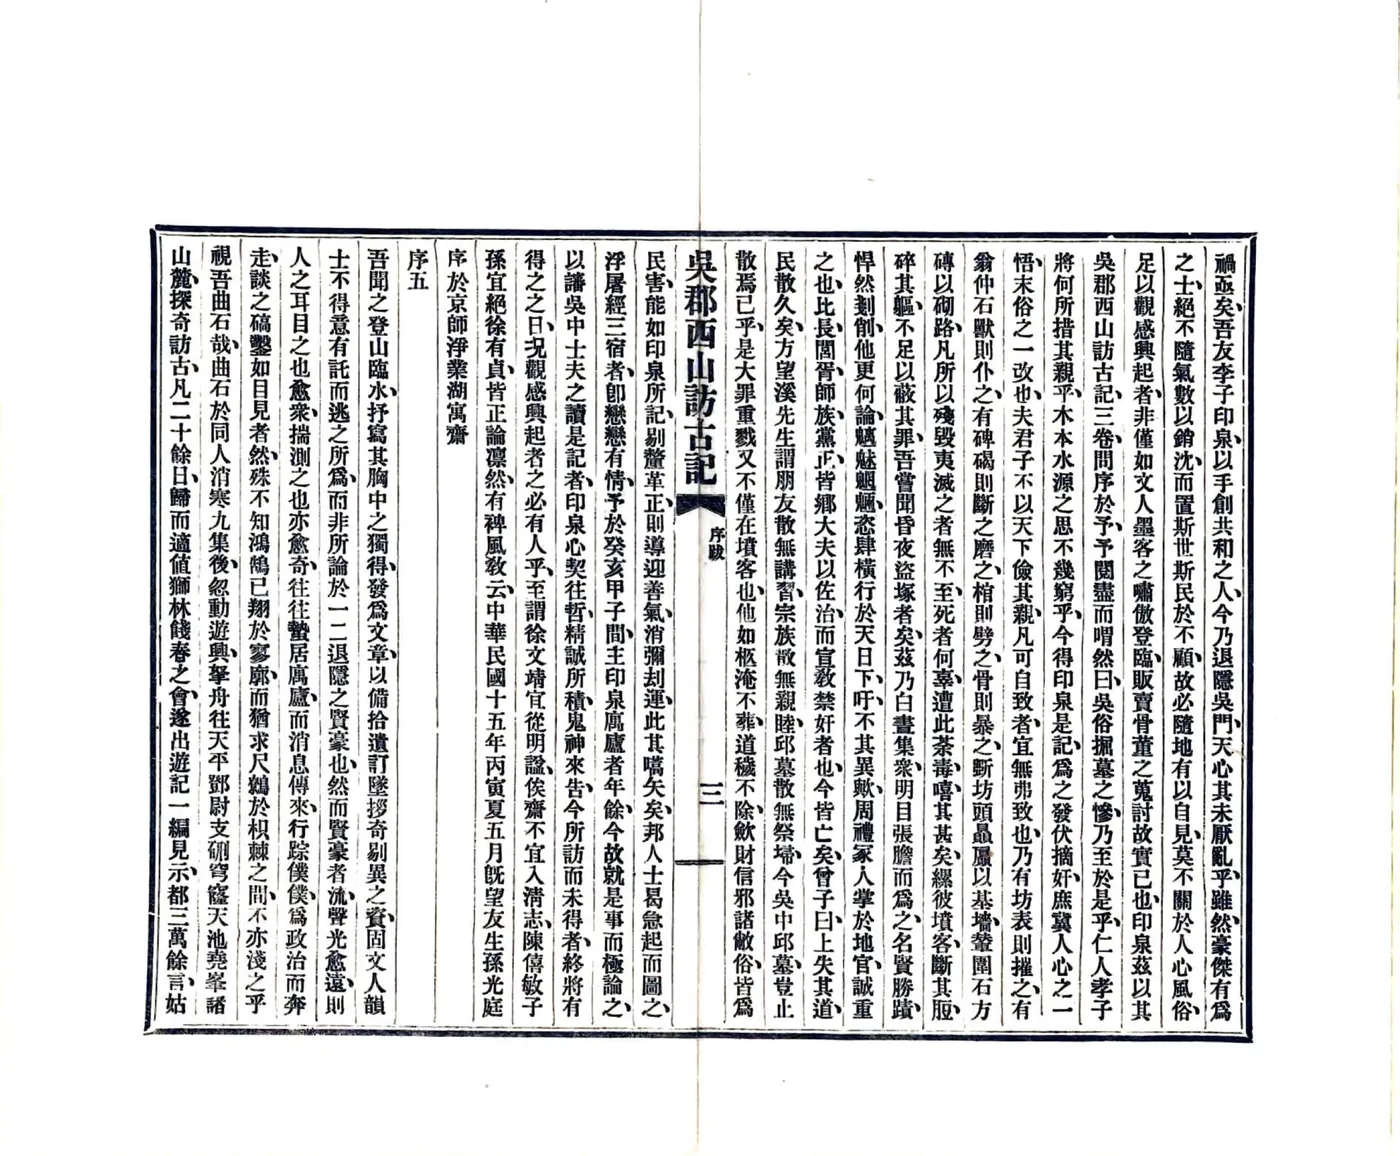 禍亟矣吾友李子印泉以手創共和之人今乃退隱吳門天心其未厭亂乎雖然豪傑有爲
之士絕不隨氣數以銷沈而置斯世斯民於不顧故必隨地有以自見莫不關於人心風俗
足以觀感興起者非僅如文人墨客之嘯傲登臨販賣骨董之蒐討故實已也印泉茲以其
吳郡西山訪古記三卷問序於予予閱盡而喟然曰吳俗掘墓之慘乃至於是乎仁人孝子
將何所措其親乎木本水源之思不幾窮乎今得印泉是記爲之發伏摘奸庶冀人心之一
悟末俗之一改也夫君子不以天下儉其親凡可自致者宜無弗致也乃有坊表則摧之有
翁仲石獸則仆之有碑碣則斷之磨之棺則劈之骨則暴之斲坊頭贔屭以基墻輦圍石方
磚以砌路凡所以殘毀夷滅之者無不至死者何辜遭此荼毒嘻其甚矣縲彼墳客斷其脰
碎其軀不足以蔽其罪吾嘗聞昏夜盜塚者矣茲乃白晝集衆明目張膽而爲之名賢勝蹟
悍然剗創他更何論魑魅魍魎恣肆橫行於天日下吁不其異歟周禮冢人掌於地官誠重
之也比長閭胥師族黨正皆鄉大夫以佐治而宣教禁奸者也今皆亡矣曾子曰上失其道
民散久矣方望溪先生謂朋友散無講習宗族散無親睦邱墓散無祭埽今吳中邱墓豈止
散焉已乎是大罪重戮又不僅在墳客也他如柩淹不葬道穢不除斂財信邪諸敝俗皆爲
吳郡西山訪古記
序跋
三
民害能如印泉所記剔釐革正則導迎善氣消彌刦運此其嚆矢矣邦人士曷急起而圖之
浮屠經三宿者卽戀戀有情予於癸亥甲子間主印泉寓廬者年餘今故就是事而極論之
以讅吳中士夫之讀是記者印泉心契往哲精誠所積鬼神來告今所訪而未得者終將有
得之之日况觀感興起者之必有人乎至謂徐文靖宜從明謚俟齋不宜入淸志陳僖敏子
孫宜絕徐有貞皆正論凛然有裨風敎云中華民國十五年丙寅夏五月旣望友生孫光庭
序於京師淨業湖寓齋
序五
吾聞之登山臨水抒寫其胸中之獨得發爲文章以備拾遺訂墜搜奇剔異之資固文人韻
士不得意有託而逃之所爲而非所論於一二退隱之賢豪也然而賢豪者流聲光愈遠則
人之耳目之也愈衆揣測之也亦愈奇往往蟄居寓廬而消息傳來行踪僕僕爲政治而奔
走談之碻鑿如目見者然殊不知鴻鵠已翔於寥廓而猶求尺鷃於枳棘之間不亦淺之乎
視吾曲石哉曲石於同人消寒九集後忽動遊興拏舟往天平鄧尉支硎穹窿天池堯峯諸
山麓探奇訪古凡二十餘日歸而適値獅林餞春之會遂出遊記一編見示都三萬餘言姑